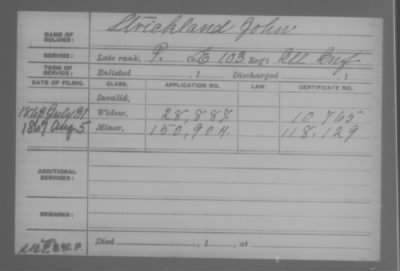 NAME OF SOLDIER: Strichland John
SERVICE: Late rank, P. Co. E 103 Reg't Ill Inf
TERM OF SERVICE: Enlisted , 1 Discharged , 1
DATE OF FILING. CLASS. APPLICATION NO. LAW CERTIFICATE NO.
Invalid,
1862 July 31 Widow, 28,887 10,765
1867 Aug 5 Minor, 150,904 118,129
ADDITIONAL SERVICES:
REMARKS:
Died , 1 , at